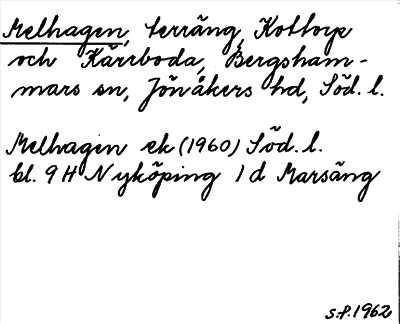 Melhagen, terräng, Kottorp
och Kärrboda, Bergsham-
mars sn, Jönåkers hd, Söd. l.
Melhagen ek (1960) Söd. l.
bl. 9 H Nyköping 1 d Marsäng
S.P. 1962